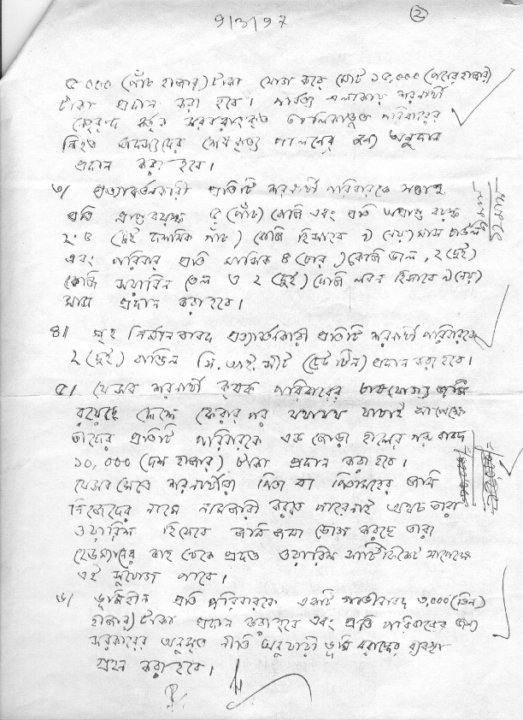 ৯/৩/৯৭
২
৫০০০ (পাঁচ হাজার) টাকা মোট ১৫,০০০ (পনের হাজার)
টাকা প্রদান করা হবে। পার্বত্য এলাকায় শরণার্থী
পরিবারের
জন্য অনুদান
প্রদান করা হবে।
৩/ প্রত্যাবর্তনকারী প্রতিটি শরণার্থী পরিবারকে সপ্তাহ
প্রতি প্রাপ্ত বয়স্ক ৫ (পাঁচ) কেজি এবং প্রতি অপ্রাপ্ত বয়স্ক
২.৫ (দুই দশমিক পাঁচ) কেজি হিসাবে ৯ (নয়) মাস চাউল
এবং পরিবার প্রতি মাসিক ৪ (চার) কেজি ডাল, ২ (দুই)
কেজি সয়াবিন তেল ও ২ (দুই) কেজি লবন হিসাবে ৯ (নয়)
মাস প্রদান করা হবে।
৪॥ গৃহ নির্মান বাবদ প্রত্যাবর্তনকারী প্রতিটি শরণার্থী পরিবারকে
২ (দুই) বান্ডিল সি.আই.সীট (ঢেউ টিন) প্রদান করা হবে।
৫/ যেসব শরণার্থী কৃষক পরিবারের চাষযোগ্য জমি
রয়েছে দেশে ফেরার পর যথাযথ যাচাই সাপেক্ষে
তাদের প্রতিটি পরিবারকে এক জোড়া হালের গরু বাবদ
১০,০০০ (দশ হাজার) টাকা প্রদান করা হবে।
যেসব শরণার্থীরা পিতা বা পিতামহের জমি
নিজেদের নামে নামজারী করতে পারেনাই অথচ তারা
ওয়ারিশ হিসেবে জমি ভোগ করছে তারা
হেডম্যানের কাছ থেকে প্রদত্ত ওয়ারিশ সার্টিফিকেট সাপেক্ষে
এই সুযোগ পাবে।
৬/ ভূমিহীন প্রতি পরিবারকে একটি গাভী বাবদ ৩,০০০ (তিন
হাজার) টাকা প্রদান করা হবে এবং প্রতি পরিবারের জন্য
সরকারের অনুসৃত নীতি অনুযায়ী ভূমি বরাদ্দের ব্যবস্থা
গ্রহন করা হবে।